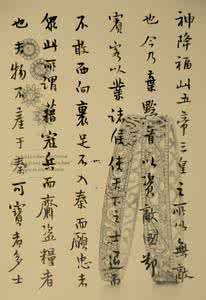 神降福此五帝三皇之所以無敵
也今乃棄黔首以資敵國卻
賓客以業諸侯使天下之士退而
不敢西向裹足不入秦而願忠者
此所謂藉寇兵而齎盜糧者
也夫物不產于秦可寶者多士